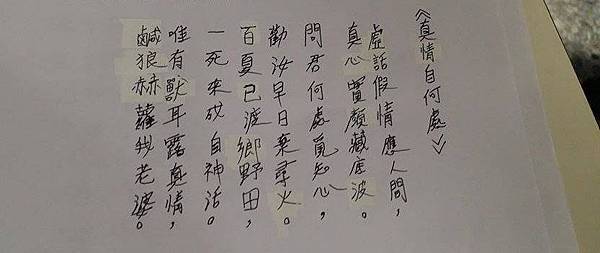 《真情自何處》
虛話假情應人問，
真心實顏藏底波。
問君何處覓知心，
勸汝早日棄尋火。
百夏已渡鄉野田，
一死來成自神活。
唯有獸耳露真情，
鹹狼赫蘿我老婆。